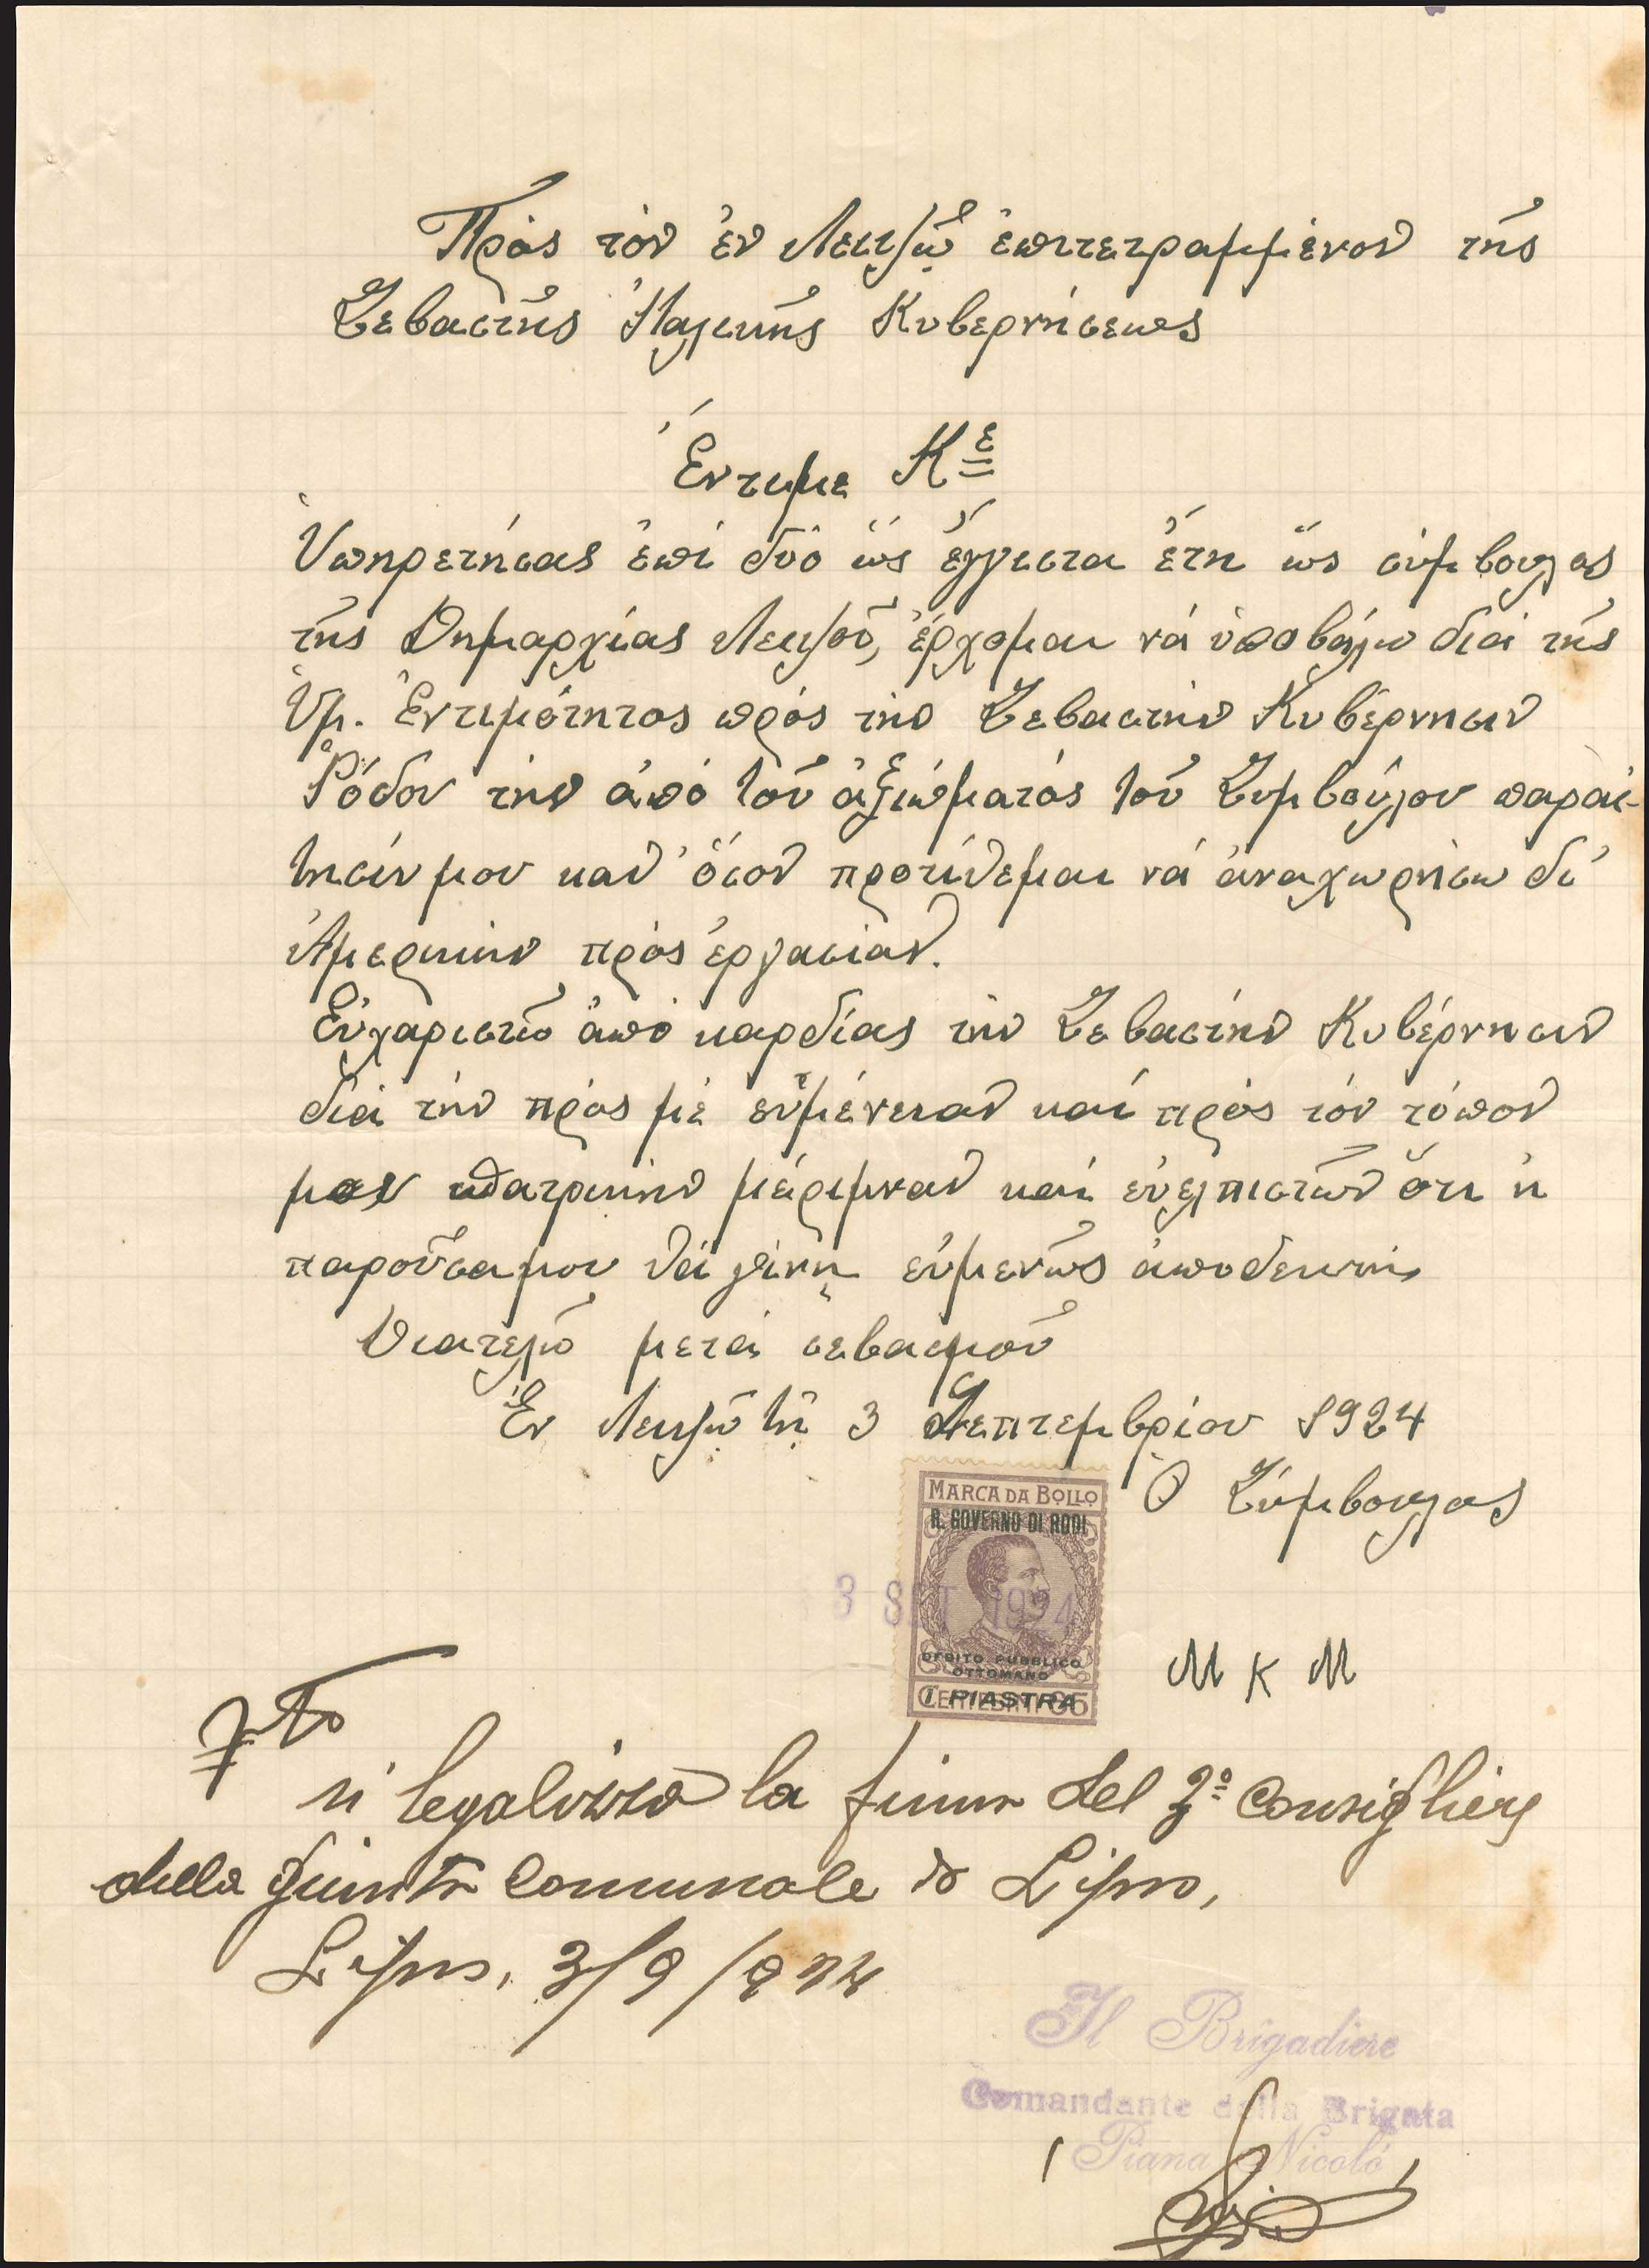 Πρὸς τὸν ἐν Λειψῷ ἐπιτετραμμένον τῆς
Σεβαστῆς Ἰταλικῆς Κυβερνήσεως
Ἔντιμε Κε
Ὑπηρετήσας ἐπί δύο ὡς ἔγγιστα ἔτη ὡς σύμβουλος
τῆς Δημαρχίας Λειψοῦ, ἔρχομαι νά ὑποβάλω διά τῆς
Ὑμ. Ἐντιμότητος πρός τήν Σεβαστήν Κυβέρνησιν
Ρόδου τήν ἀπό τοῦ ἀξιώματός τοῦ Συμβούλου παραί-
τησίν μου καθ' ὅσον προτίθεμαι νά ἀναχωρήσω δι'
Ἀμερικήν πρὸς ἐργασίαν.
Εὐχαριστῶ ἀπό καρδίας τήν Σεβαστήν Κυβέρνησιν
διά τήν πρὸς μέ εὐμένειαν καί πρὸς τόν τόπον
μου πατρικήν μέριμναν καί εὐελπιστῶν ὅτι ἡ
παροῦσα μου θά γίνῃ εὐμενῶς ἀποδεκτή,
Διατελῶ μετά σεβασμοῦ
Ἐν Λειψῷ τῇ 3 Σεπτεμβρίου 1924
Ὁ Σύμβουλος
MARCA DA BOLLO
R. GOVERNO DI RODI
3 SET 1924
DEBITO PUBBLICO
OTTOMANO
1 PIASTRA
Μ Κ Μ
Vto
si legalizza la firma del 2º Consigliere
della Giunta Comunale di Lipso,
Lipso, 3/9/924
Il Brigadiere
Comandante della Brigata
(Piana Nicolò)